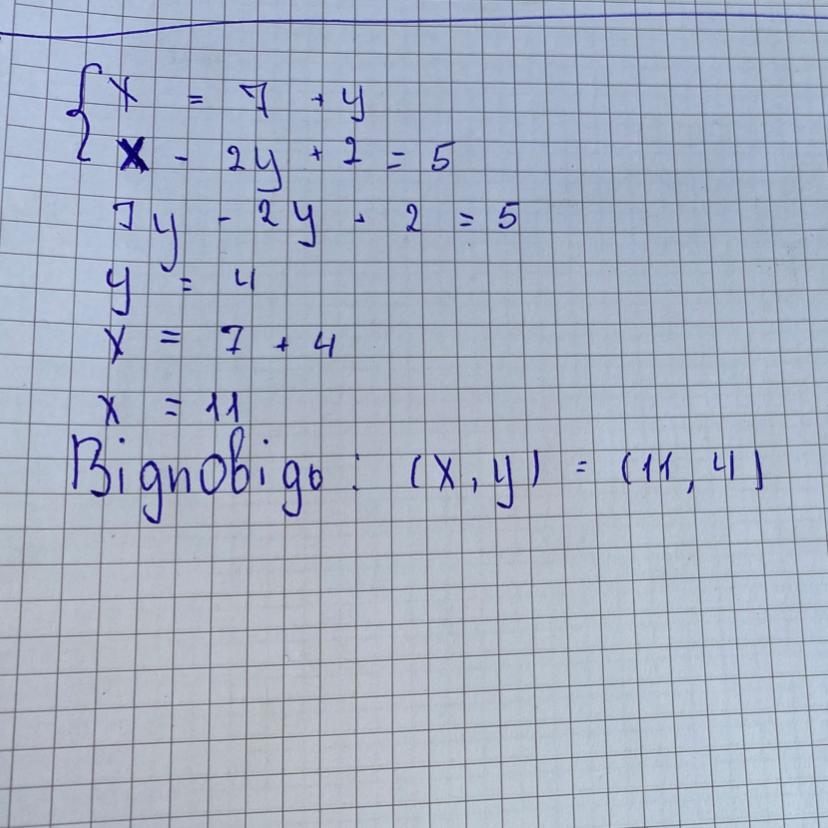 { x = 7 + y
x - 2y + 2 = 5
7y - 2y · 2 = 5
y = 4
x = 7 + 4
x = 11
Відповідь: (x, y) = (11, 4)